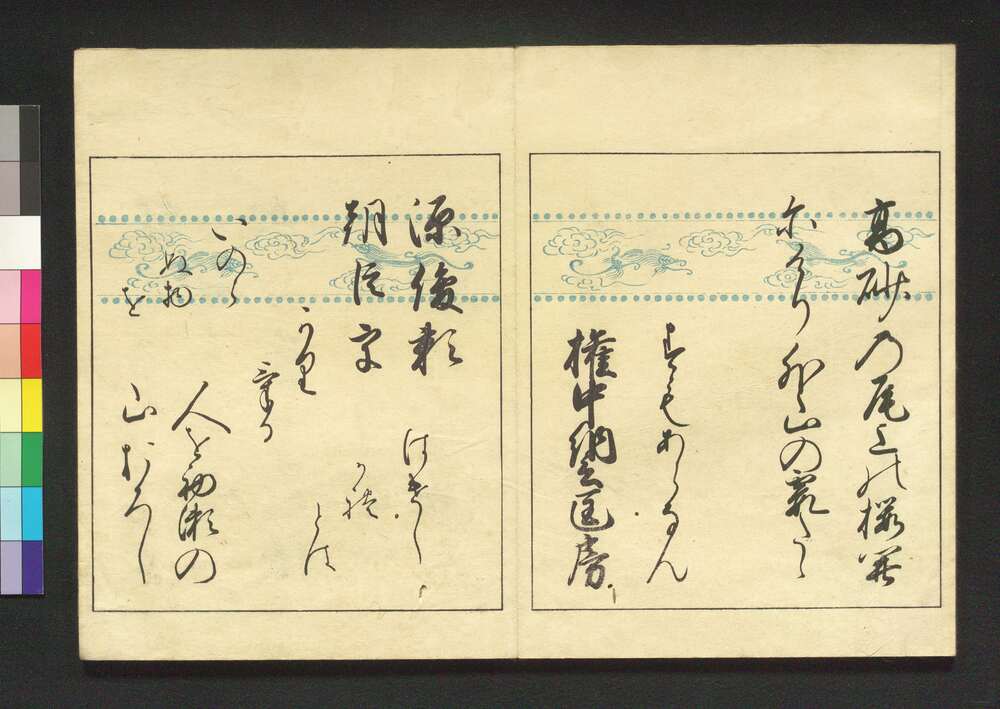 高砂乃尾上の桜咲
尓けり外山の霞たゝ
すもあらなん
権中納言匡房
源俊頼
朝臣
う
かり
ける
人を初瀬の
山おろし
はけし
かれ
とは
いのら
ぬ物
を